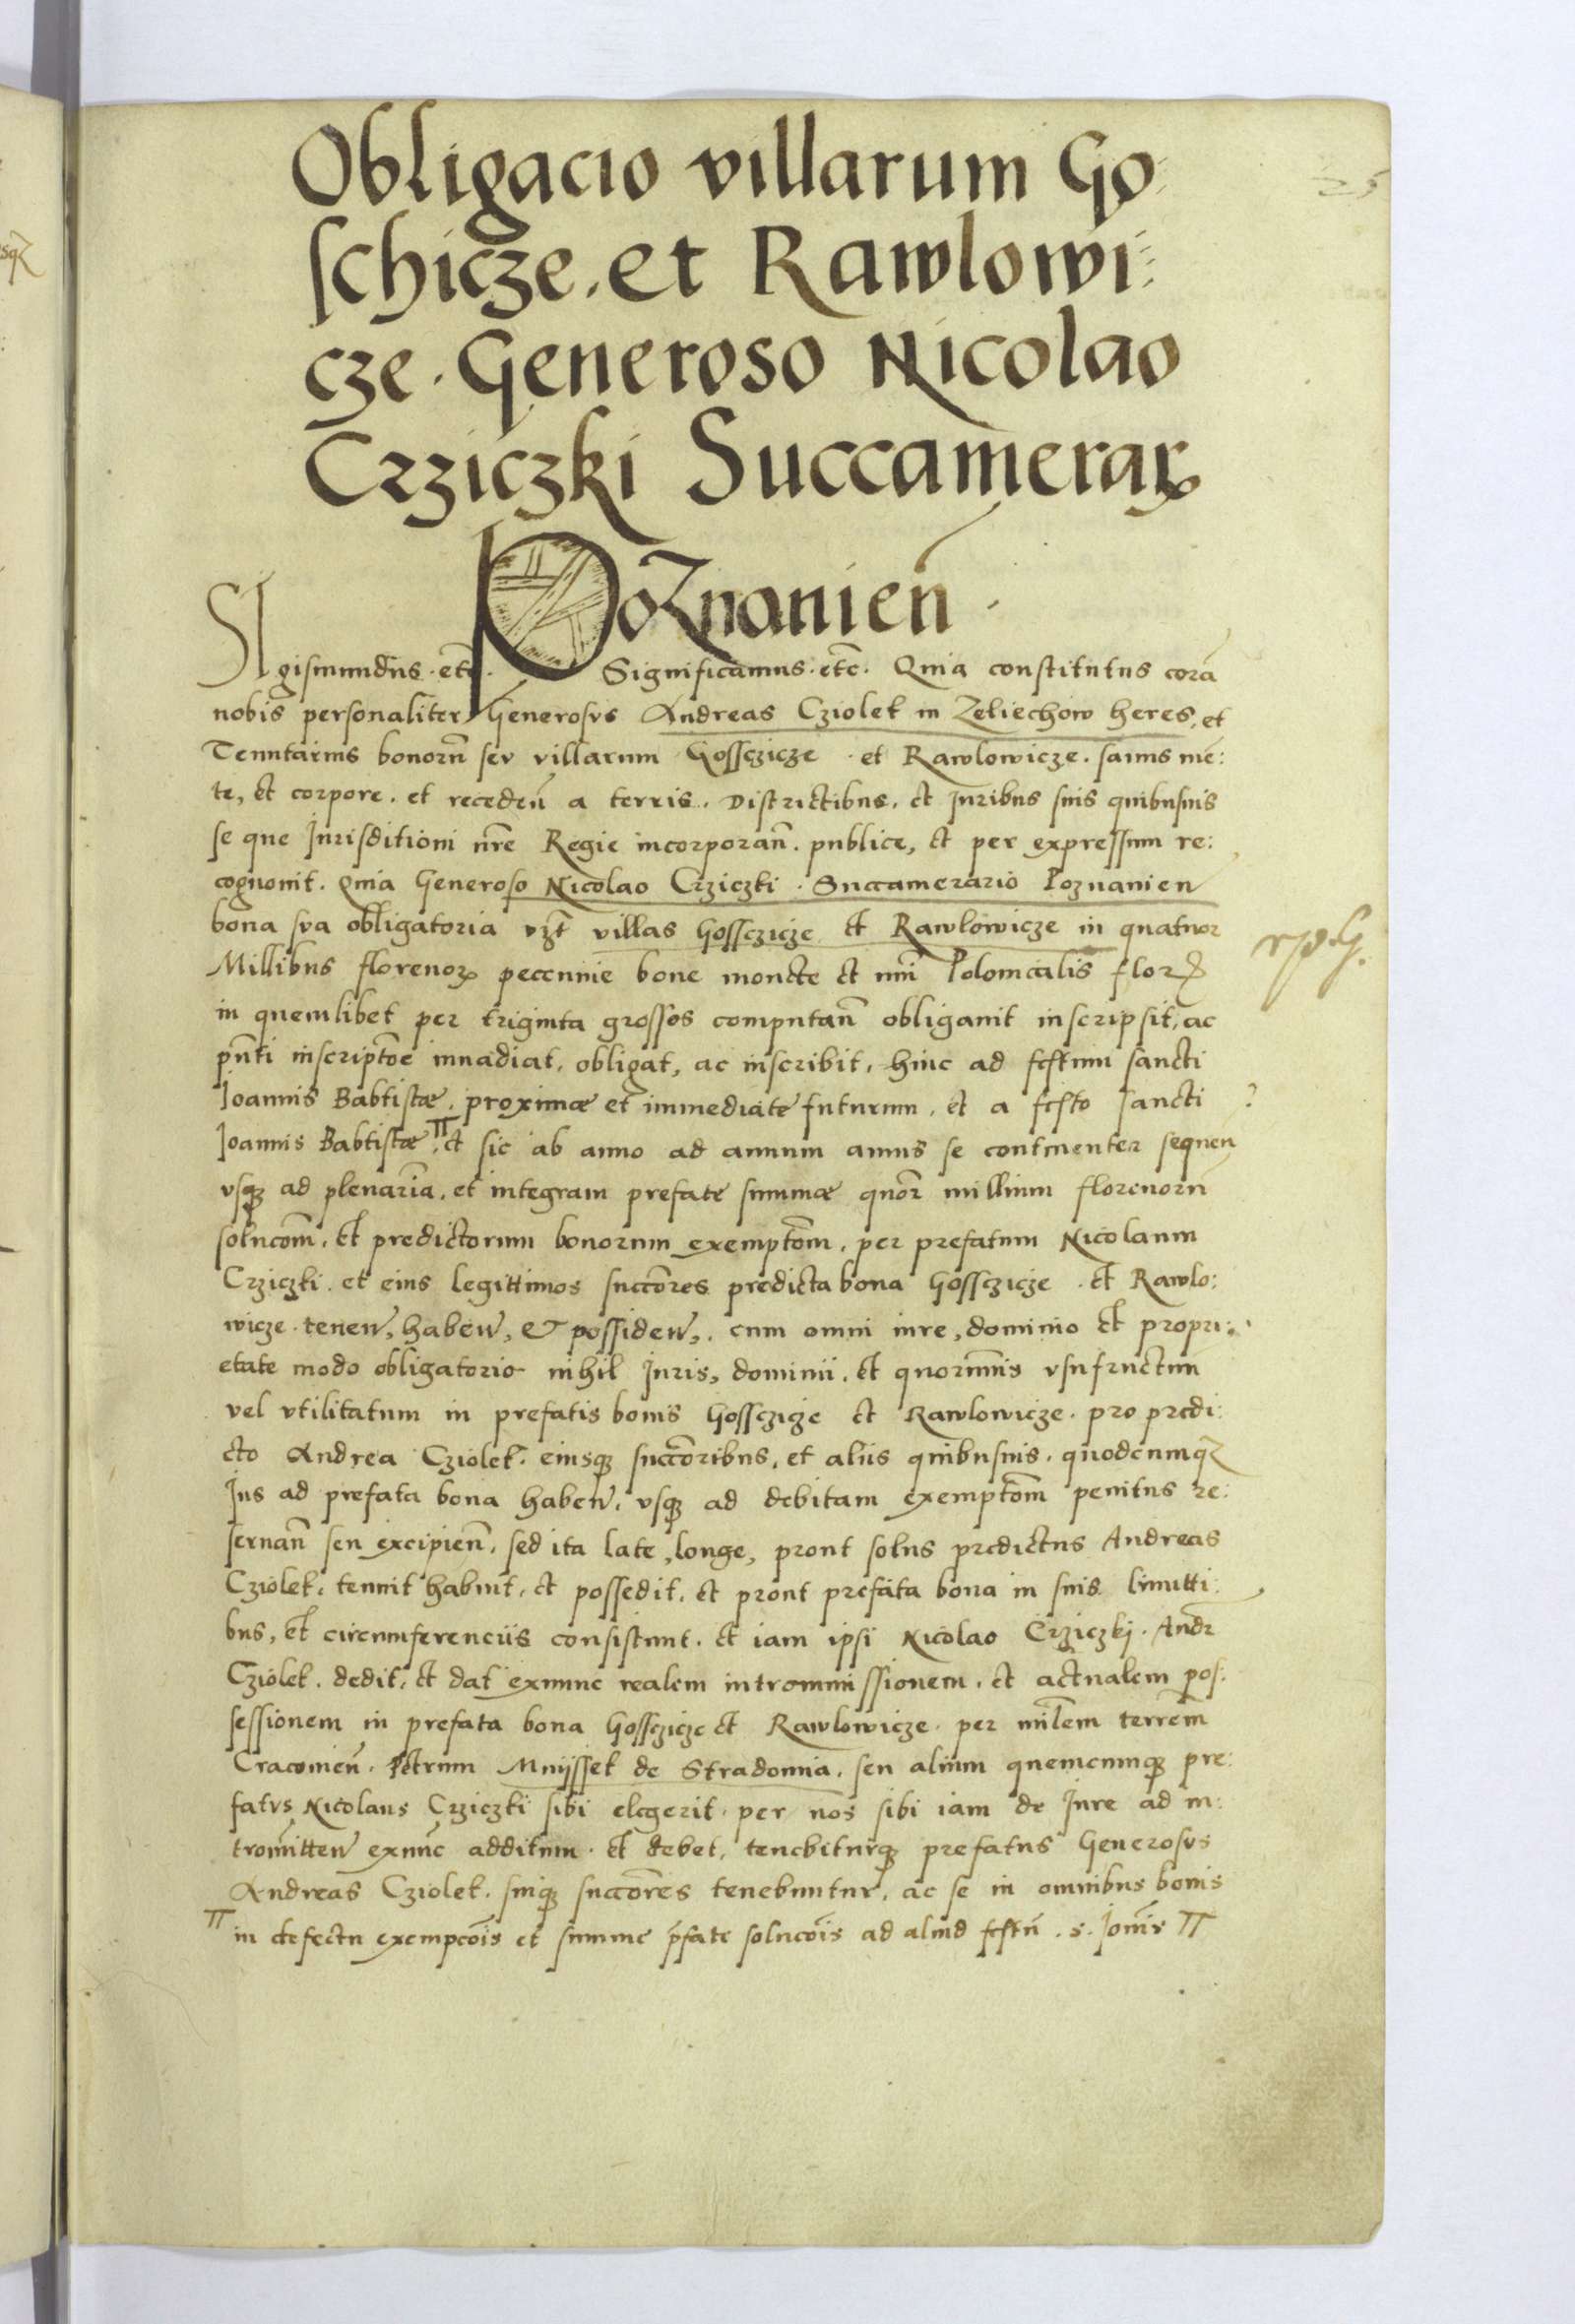 25
Obligacio villarum Go:
schicze. et Rawlowi:
cze. Generoso Nicolao
Crziczki Succamerar
Poznanien̄.
Sigismundus. etc. Significamus. etc. Quia constitutus corā
nobis personaliter Generosus Andreas Cziolek in Zeliechow heres, et
Tenutarius bonorū seu villarum Gossczicze et Rawlowicze. sanus mē:
te, et corpore. et recedeñ a terris. Districtibus. et Iuribus suis quibusuis
se que Iurisditioni nr̄e Regie incorporañ. publice, et per expressum re:
cognouit. Quia Generoso Nicolao Crziczki. Succamerario Poznanien
bona sua obligatoria vzt villas Gossczicze et Rawlowicze in quatuor
Millibus florenoꝝ peccunie bone monete et nūi Polonicalis flor
in quemlibet per triginta grossos computañ obligauit inscripsit, ac
pn̄ti inscriptōe inuadiat, obligat, ac inscribit, hinc ad festum sancti
Ioannis Babtistæ. proximæ et immediate futurum, et a festo sancti
Ioannis Babtistæ. π et sic ab anno ad annum annis se continenter sequeñ
vsqꝫ ad plenariā. et integram prefate summæ quor̄ millium florenorū
solucōm. et predictorum bonorum exemptōm. per prefatum Nicolaum
Crziczki. et eius legittimos succōres predicta bona Gossczicze. et Rawlo:
wicze. teneñ, habeñ, & possideñ,. cum omni iure, dominio et propri:
etate modo obligatorio nihil Iuris, dominii. et quorumuis vsufructum
vel vtilitatum in prefatis bonis Gossczicze et Rawlowicze. pro predi:
cto Andrea Cziolek. eiusqꝫ succōribus, et aliis quibusuis. quodcumqꝫ
Ius ad prefata bona habeñ. vsqꝫ ad debitam exemptōm penitus re:
seruañ seu excipieñ. sed ita late, longe, prout solus predictus Andreas
Cziolek. tenuit habuit, et possedit. et prout prefata bona in suis limitti:
bus, et circumferenciis consistunt. et iam ipsi Nicolao Crziczkj. Andr
Cziolek. dedit, et dat exnunc realem intromissionem. et actualem pos:
sessionem in prefata bona Gossczicze et Rawlowicze. per milt̄em terrēm
Cracouień. Petrum Mnijssek de Stradomia. seu alium quemcumqꝫ pre:
fatus Nicolaus Crziczki sibi elegerit. per nos sibi iam de Iure ad in:
tromitteñ exnūc additum. et debet, tenebiturqꝫ prefatus Generosus
Andreas Cziolek. suiqꝫ succōres tenebuntur, ac se in omnibus bonis
π in defectu exempcōis et summe p̄fate solucōis ad aliud festū. s. Ioānis π